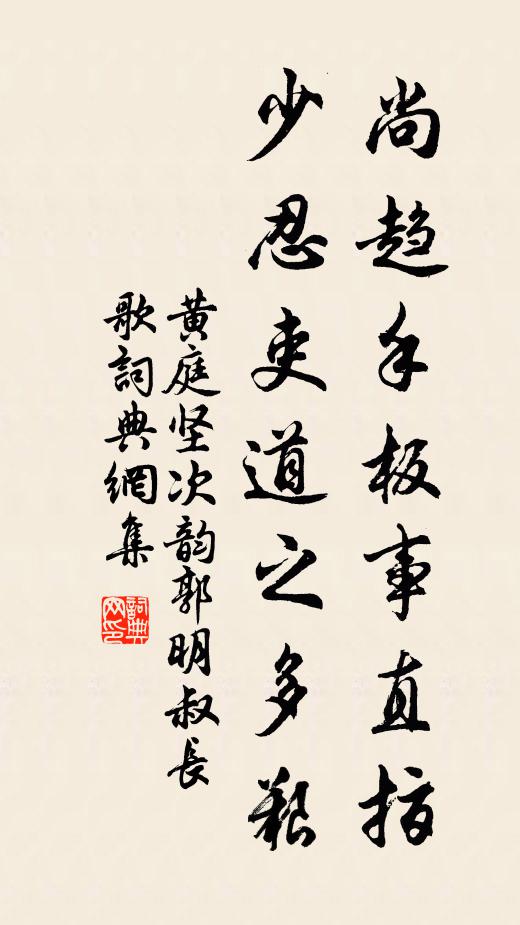 尚趋手板事直指
少忍吏道之多艰
黄庭坚次韵郭明叔長
歌詞典網集
詞典
网印